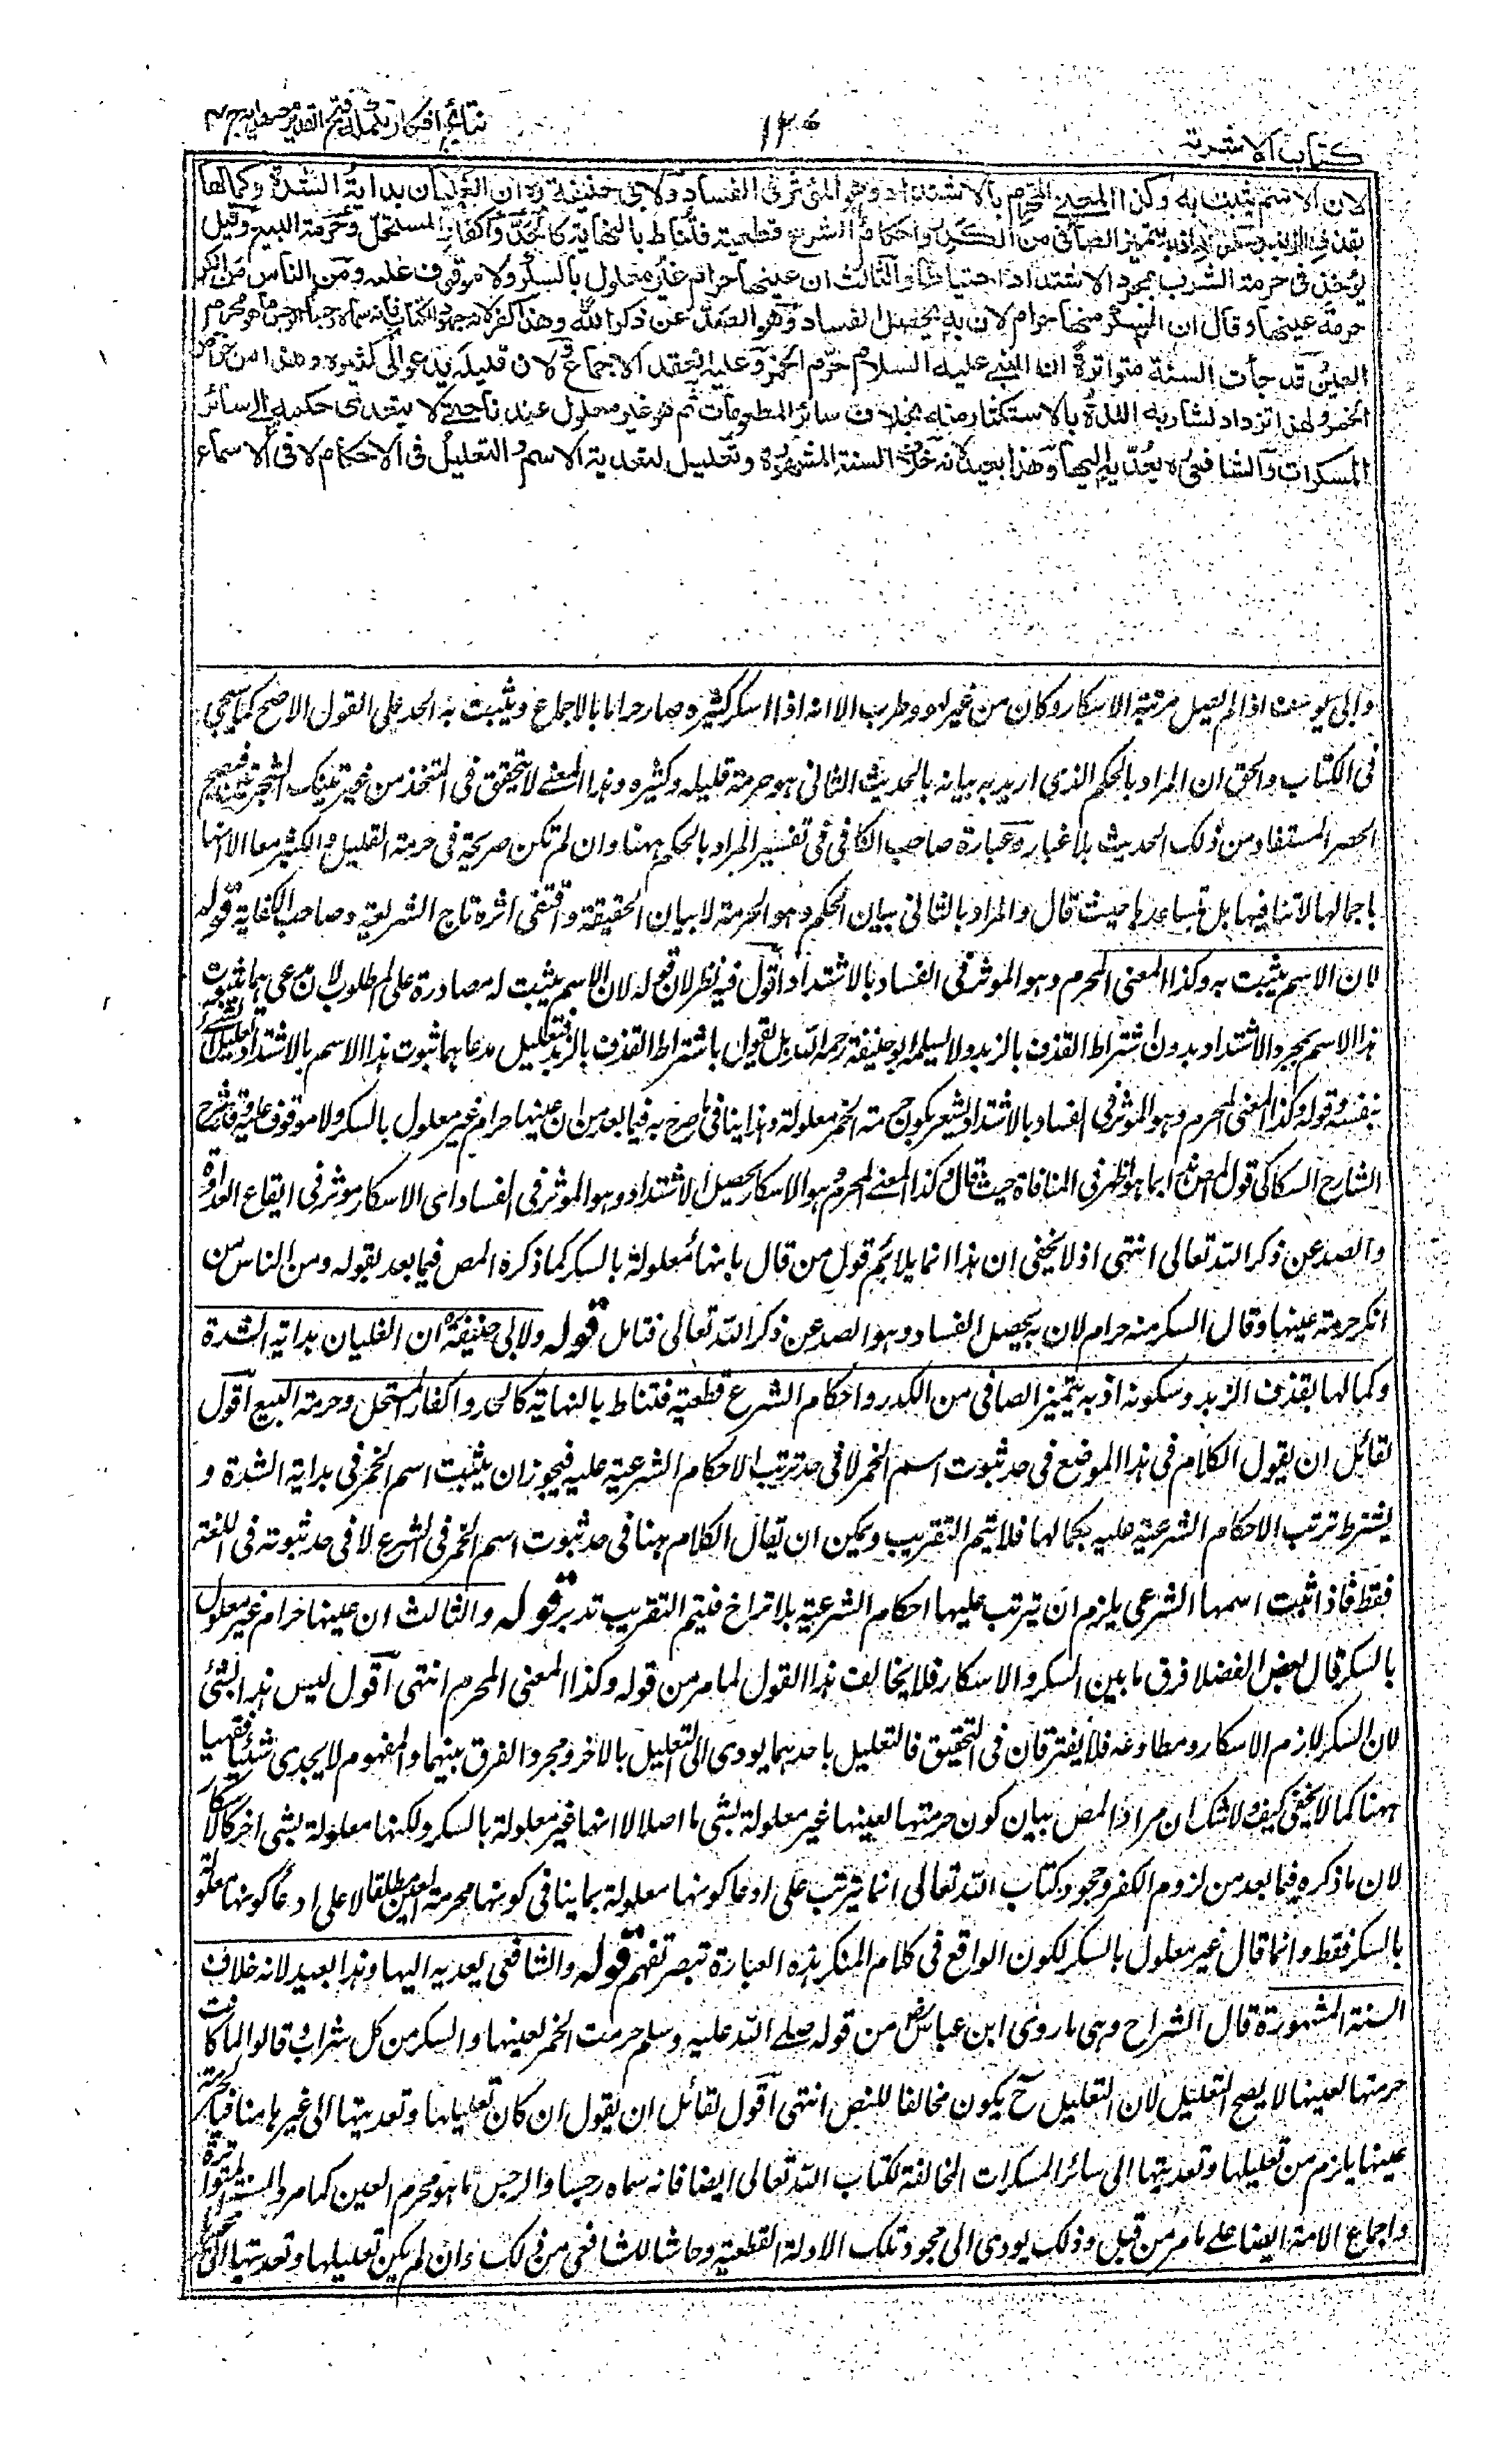 كتاب الاشربة
١٣٦
نتائج افكار تكملة فتح القدير مع هدايه ج ٤
لان الاسم يثبت به وكذا المعنى المحرم بالاشتداد وهو المؤثر فى الفساد ولابى حنيفة ره ان الغليان بداية الشدة وكمالها
بقذف الزبد وسكونه اذ به يتميز الصافى من الكدر واحكام الشرع قطعية فتناط بالنهاية كالحد واكفار المستحل وحرمة البيع وقيل
يؤخذ فى حرمة الشرب بمجرد الاشتداد احتياطا والثالث ان عينها حرام غير معلول بالسكر ولا موقوف عليه ومن الناس من انكر
حرمة عينها وقال ان المسكر منها حرام لان به يحصل الفساد وهو الصد عن ذكر الله وهذا كفر لانه جحود الكتاب فانه سماه رجسا والرجس ما هو محرم
العين وقد جاءت السنة متواترة ان النبى عليه السلام حرم الخمر وعليه انعقد الاجماع ولان قليله يدعو الى كثيره وهذا من خواص
الخمر ولهذا تزداد لشاربه اللذة بالاستكثار منه بخلاف سائر المطعومات ثم هو غير معلول عندنا حتى لا يتعدى حكمه الى سائر
المسكرات والشافعى ره يعديه اليها وهذا بعيد لانه خلاف السنة المشهورة وتعليل لتعدية الاسم والتعليل فى الاحكام لا فى الاسماء
وابى يوسف اذا لم تصل مرتبة الاسكار وكان من غير لهو وطرب الا انه اذا اسكر كثيره صار حراما بالاجماع ويثبت به الحد على القول الاصح كما سيجى
فى الكتاب والحق ان المراد بالحكم الذى اريد به بيانه بالحديث الثانى هو حرمة قليله وكثيره وهذا المعنى لا يتحقق فى المتخذ من غير تينك الشجرتين فيصح
الحصر المستفاد من ذلك الحديث بلا غبار وعبارة صاحب الكافى فى تفسير المراد بالحكم ههنا وان لم تكن صريحة فى حرمة القليل والكثير معا الا انها
باجمالها لا تنافيها بل تساعدها حيث قال والمراد بالثانى بيان الحكم وهو الحرمة لا بيان الحقيقة واقتفى اثره تاج الشريعة وصاحب الكفاية قوله
لان الاسم يثبت به وكذا المعنى المحرم وهو الموثر فى الفساد بالاشتداد اقول فيه نظر لان قوله لان الاسم يثبت له مصادرة على المطلوب لان مدعى هما ثبوت
هذا الاسم بمجرد الاشتداد بدون اشتراط القذف بالزبد ولا يسلمه ابو حنيفة رحمه الله بل يقول باشتراط القذف بالزبد فتعليل مدعاهما ثبوت هذا الاسم بالاشتداد تعليل الشئ
بنفسه وقوله وكذا المعنى المحرم وهو الموثر فى الفساد بالاشتداد يشعر بكون حرمة الخمر معلولة وهذا ينافى ما صرح به فيما بعد من ان عينها حرام غير معلول بالسكر ولا موقوف عليه وقد شرح
الشارح السكاكى قول المص هذا بما هو اظهر فى المنافاة حيث قال وكذا المعنى المحرم وهو الاسكار يحصل بالاشتداد وهو الموثر فى الفساد اى الاسكار موثر فى ايقاع العداوة
والصد عن ذكر الله تعالى انتهى اذ لا يخفى ان هذا انما يلائم قول من قال بانها معلولة بالسكر كما ذكره المص فيما بعد بقوله ومن الناس من
انكر حرمة عينها وقال السكر منه حرام لان به يحصل الفساد وهو الصد عن ذكر الله تعالى فتامل قوله ولابى حنيفة ره ان الغليان بداية الشدة
وكمالها بقذف الزبد وسكونه اذ به يتميز الصافى من الكدر واحكام الشرع قطعية فتناط بالنهاية كالحد واكفار المستحل وحرمة البيع اقول
لقائل ان يقول الكلام فى هذا الموضع فى حد ثبوت اسم الخمر لا فى حد ترتب الاحكام الشرعية عليه فيجوز ان يثبت اسم الخمر فى بداية الشدة و
يشترط ترتب الاحكام الشرعية عليه بكمالها فلا يتم التقريب ويمكن ان يقال الكلام هنا فى حد ثبوت اسم الخمر فى الشرع لا فى حد ثبوته فى اللغة
فقط فاذا ثبت اسمها الشرعى يلزم ان يترتب عليها احكام الشرعية بلا تراخ فيتم التقريب تدبر قوله والثالث ان عينها حرام غير معلول
بالسكر قال بعض الفضلا فرق ما بين السكر والاسكار فلا يخالف هذا القول لما مر من قوله وكذا المعنى المحرم انتهى اقول ليس هذا بشئ
لان السكر لازم الاسكار ومطاوعه فلا يفترقان فى التحقيق فالتعليل باحدهما يودى الى التعليل بالاخر ومجرد الفرق بينهما والمفهوم لا يجدى شئيا فقهيا
ههنا كما لا يخفى كيف ولا شك ان مراد المص بيان كون حرمتها لعينها غير معلولة بشئ ما اصلا لا انها غير معلولة بالسكر ولكنها معلولة بشئ اخر كالاسكار
لان ما ذكره فيما بعد من لزوم الكفر وجحود كتاب الله تعالى انما يترتب على ادعا كونها معلولة بما ينافى كونها محرمة العين مطلقا لا على ادعا كونها معلولة
بالسكر فقط وانما قال غير معلول بالسكر لكون الواقع فى كلام المنكر هذه العبارة تبصر تفهم قوله والشافعى يعديه اليها وهذا بعيد لانه خلاف
السنة المشهورة قال الشراح وهى ما روى ابن عباس رض من قوله صلى الله عليه وسلم حرمت الخمر لعينها والسكر من كل شراب وقالوا لما كانت
حرمتها لعينها لا يصح التعليل لان التعليل ح يكون مخالفا للنص انتهى اقول لقائل ان يقول ان كان تعليلها وتعديتها الى غيرها منافيا لحرمة
عينها يلزم من تعليلها وتعديتها الى سائر المسكرات المخالفة لكتاب الله تعالى ايضا فانه سماه رجسا والرجس ما هو محرم العين كما مر والسنة المتواترة
واجماع الامة ايضا على ما مر من قبل وذلك يودى الى جحود تلك الادلة القطعية وحاشا للشافعى من ذلك وان لم يكن تعليلها وتعديتها الى